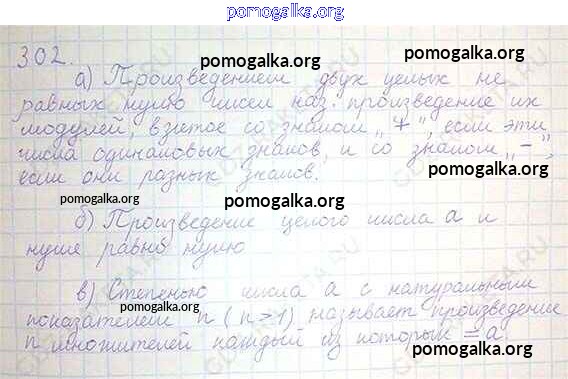 pomogalka.org
302.
pomogalka.org
pomogalka.org
а) Произведением двух целых не
равных нулю чисел наз. произведение их
модулей, взятое со знаком „+", если эти
числа одинаковых знаков, и со знаком „-",
если они разных знаков.
pomogalka.org
pomogalka.org
б) Произведение целого числа a и
нуля равно нулю
pomogalka.org
в) Степенью числа a с натуральным
pomogalka.org
показателем n (n>1) называет произведение
n множителей каждый из которых = a.
pomogalka.org
GDZRAKETA.RU